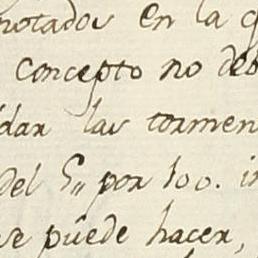 notados en la
concepto no deb
dar las tormen
del 5,, por 100. i
se puede hacer,